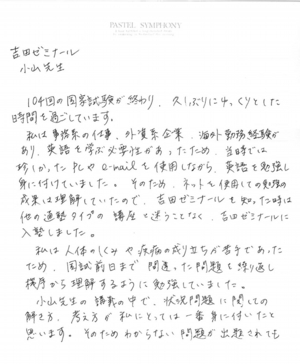 PASTEL SYMPHONY
吉田ゼミナール
小山先生
104回の国家試験が終わり、久しぶりにゆっくりとした
時間を過ごしています。
私は事務系の仕事、外資系企業、海外勤務経験が
あり、英語を学ぶ必要性があったため、当時では
珍しかったPCやe-mailを使用しながら、英語を勉強し
身に付けていました。そのため、ネットを使用しての勉強の
成果は理解していたので、吉田ゼミナールを知った時は
他の通塾タイプの講座と迷うことなく、吉田ゼミナールに
入塾しました。
私は人体のしくみや疾病の成り立ちが苦手であった
ため、国試前日まで間違った問題を繰り返し
機序から理解するように勉強していました。
小山先生の講義の中で、状況問題に関しての
解き方、考え方が私にとっては一番身に付いたと
思います。そのためわからない問題が出題されても